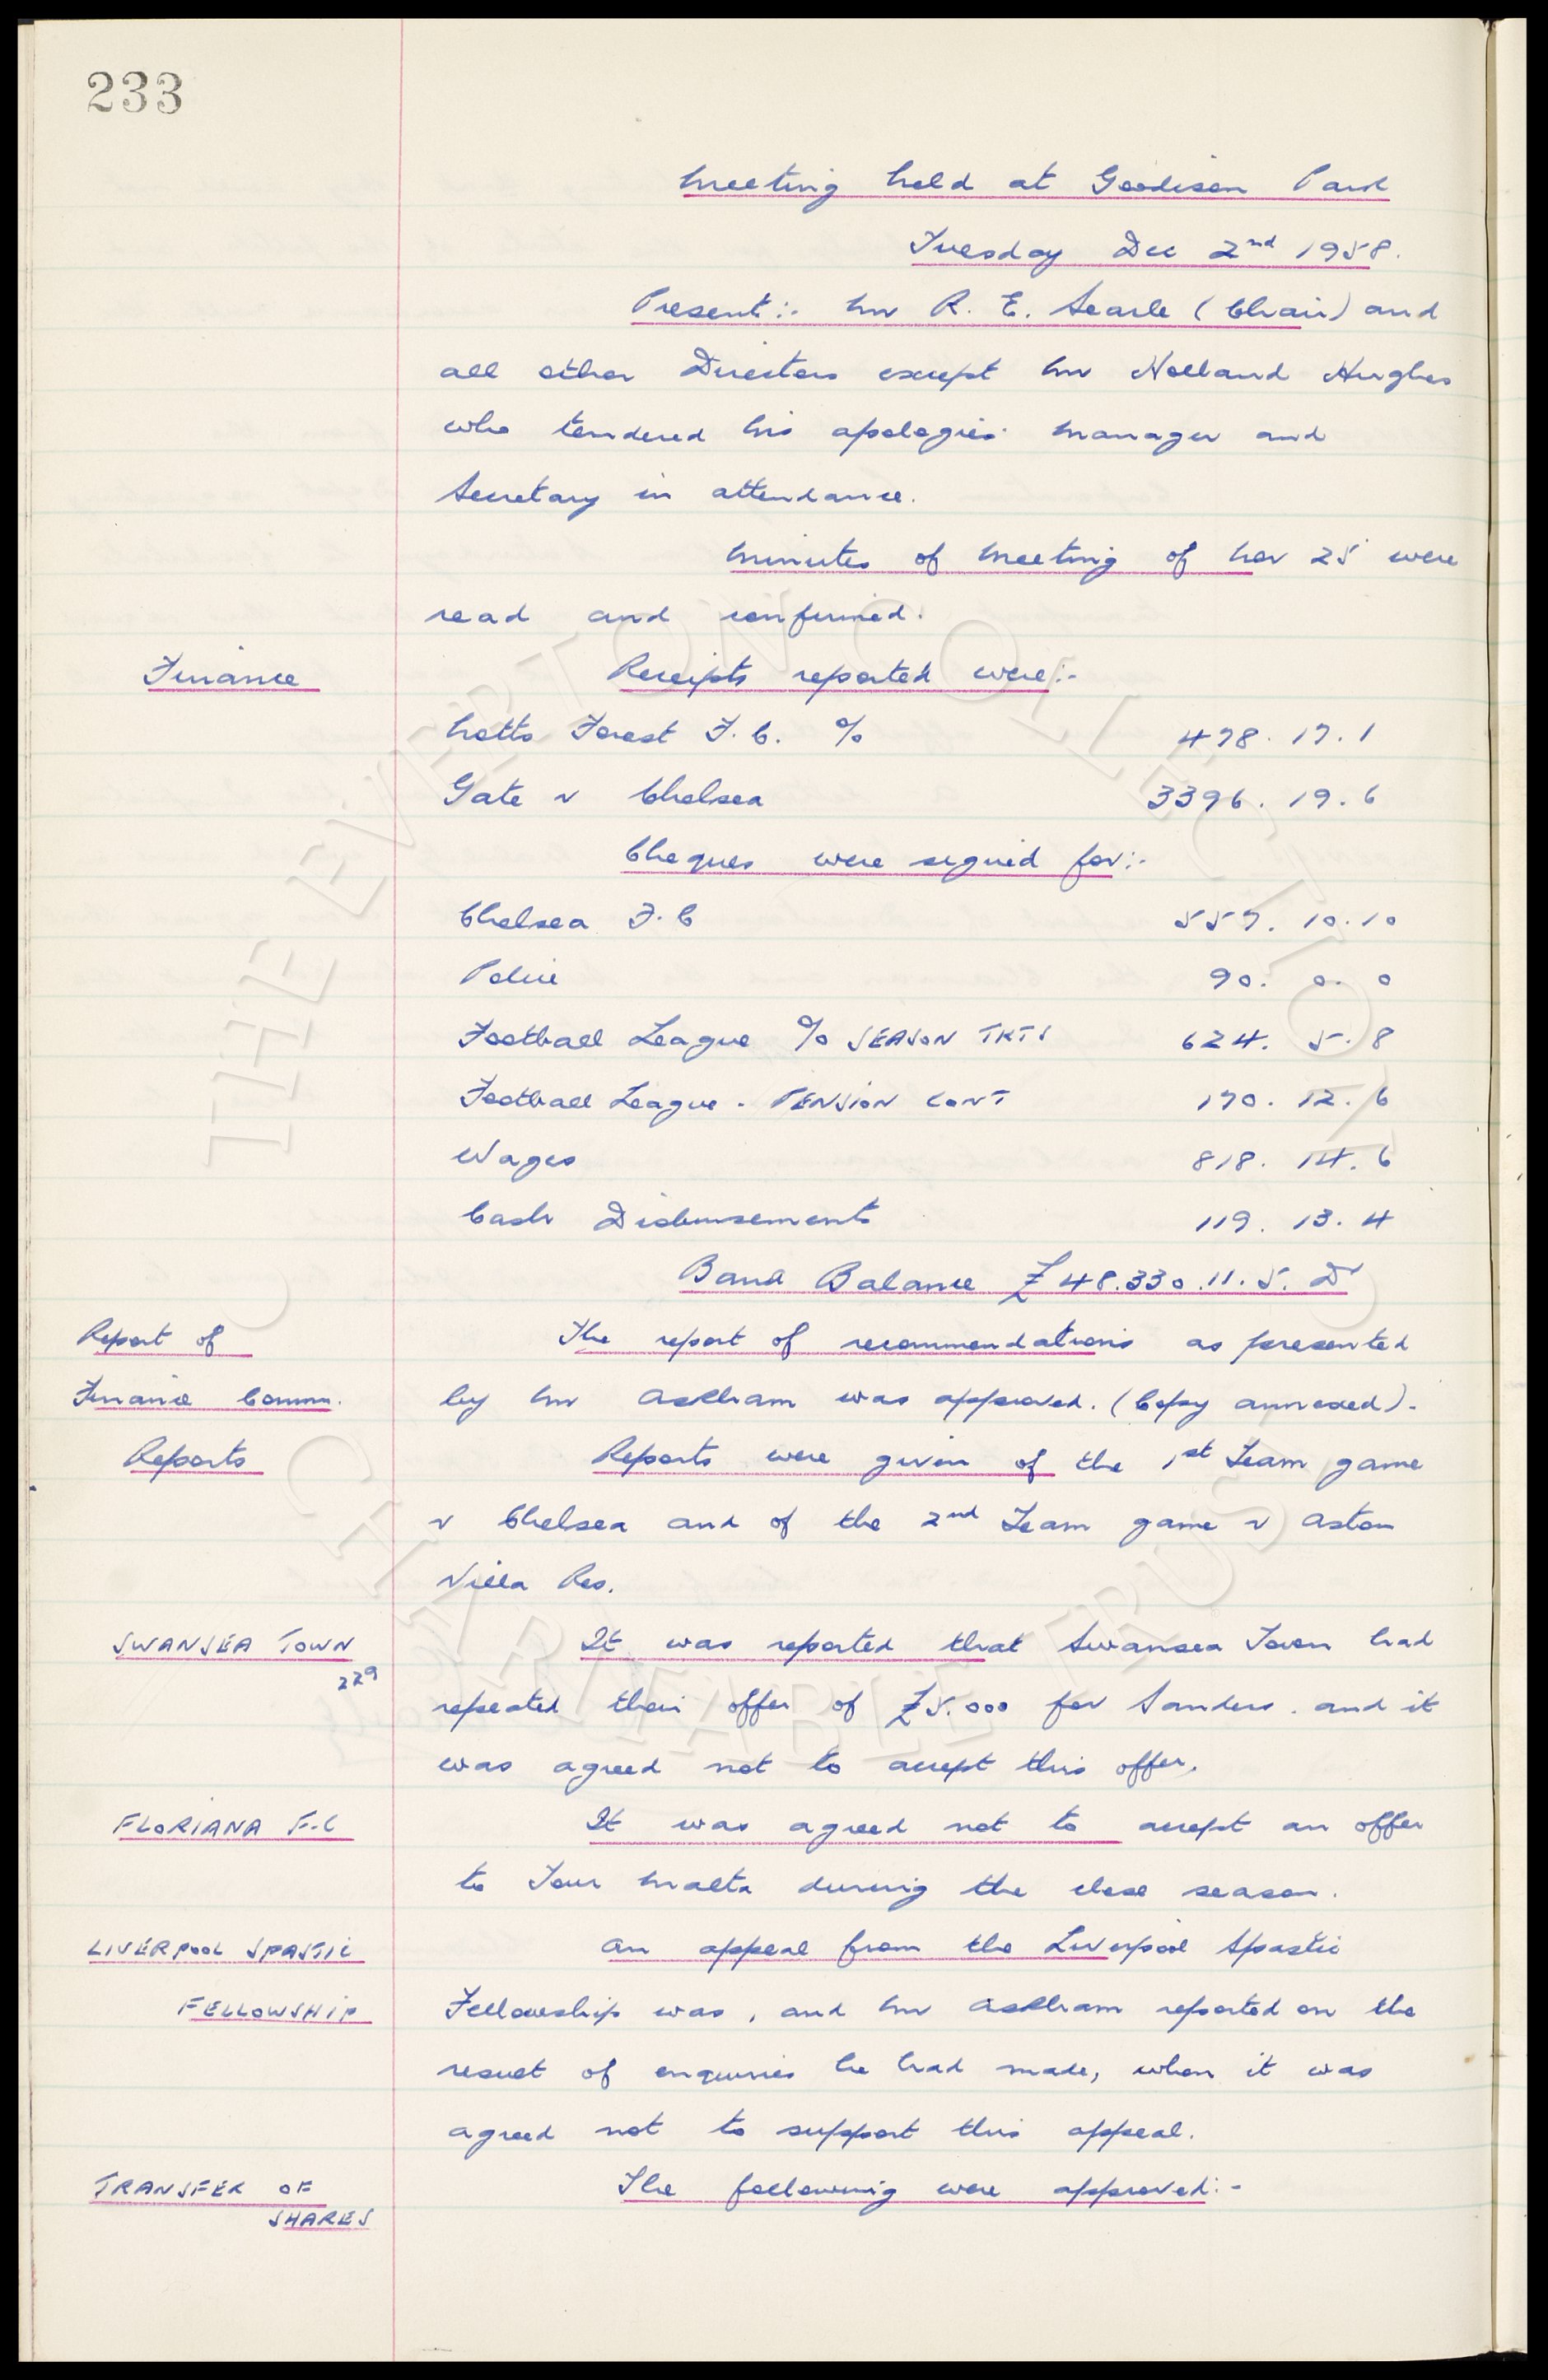 233
Meeting held at Goodison Park
Tuesday Dec 2nd 1958.
Present:- Mr R. E. Searle (Chair) and
all other Directors except Mr Holland Hughes
who tendered his apologies. Manager and
Secretary in attendance.
Minutes of Meeting of Nov 25 were
read and confirmed.
Finance Receipts reported were:-
Notts Forest F.C. % 478. 17. 1
Gate v Chelsea 3396. 19. 6
Cheques were signed for:-
Chelsea F.C 557. 10. 10
Police 90. 0. 0
Football League % SEASON TKTS 624. 5. 8
Football League. PENSION CONT 170. 12. 6
Wages 818. 14. 6
Cash Disbursements 119. 13. 4
Bank Balance £48.330.11.5. Dr
Report of The report of recommendations as presented
Finance Comm. by Mr Askham was approved. (Copy annexed).
Reports Reports were given of the 1st Team game
v Chelsea and of the 2nd Team game v Aston
Villa Res.
SWANSEA TOWN It was reported that Swansea Town had
229
repeated their offer of £5.000 for Sanders. and it
was agreed not to accept this offer.
FLORIANA F.C It was agreed not to accept an offer
to Tour Malta during the close season.
LIVERPOOL SPASTIC An appeal from the Liverpool Spastic
FELLOWSHIP Fellowship was, and Mr Askham reported on the
result of enquiries he had made, when it was
agreed not to support this appeal.
TRANSFER OF The following were approved:-
SHARES
THE EVERTON COLLECTION
CHARITABLE TRUST